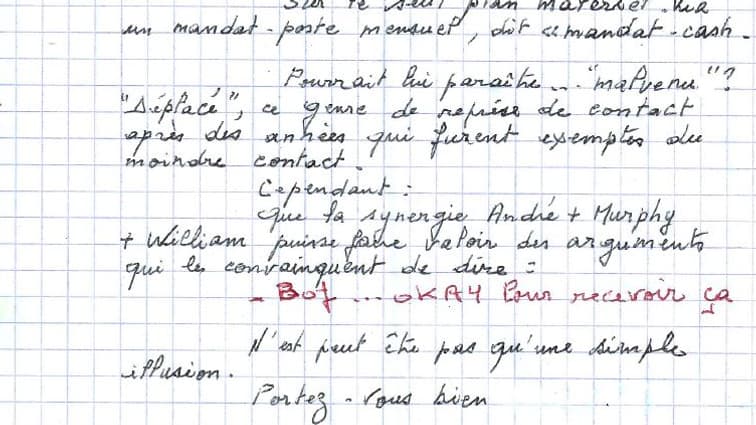 Sur le seul plan matériel
un mandat-poste mensuel, dit "mandat-cash.
Pourrait lui paraître... "malvenu"?
"Déplacé", ce genre de reprise de contact
après des années qui furent exemptes du
moindre contact.
Cependant :
que la synergie André + Murphy
+ William puisse faire valoir des arguments
qui le convainquent de dire =
- Bof ... OKAY Pour recevoir ça
N'est peut être pas qu'une simple
illusion.
Portez-vous bien